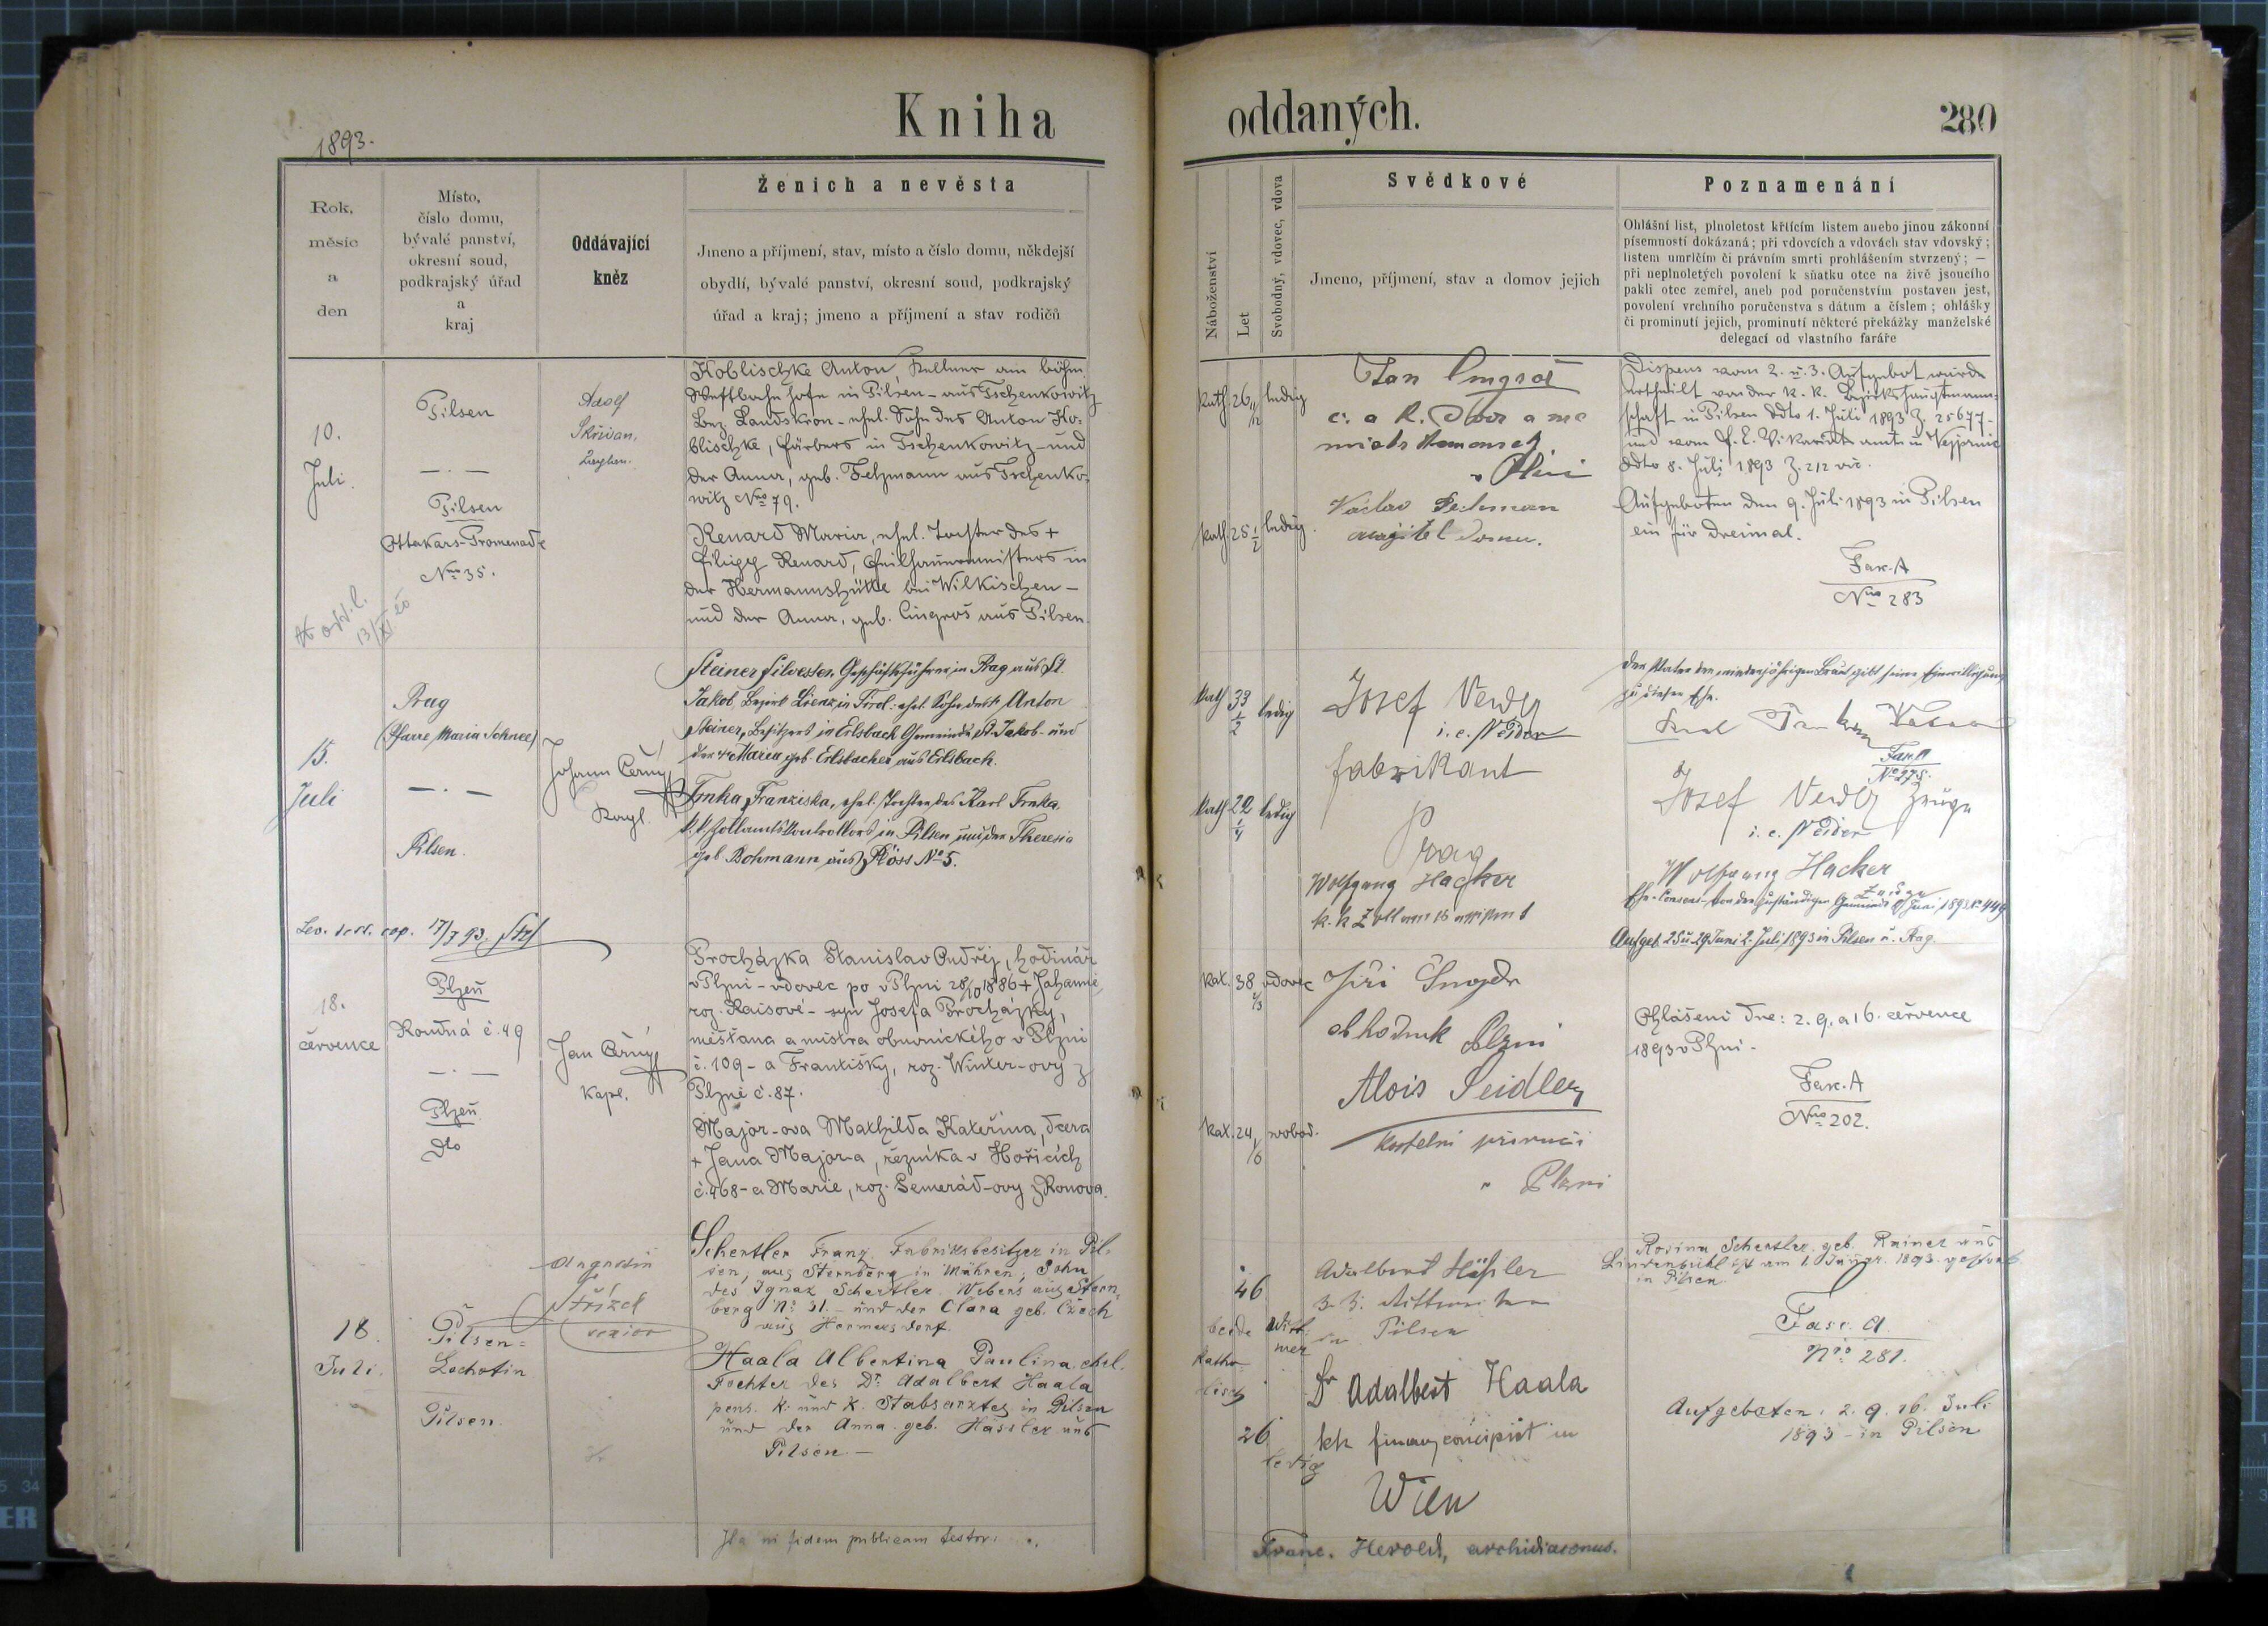 1893.
Kniha oddaných.
280
Rok,
měsíc
a
den
Místo,
číslo domu,
bývalé panství,
okresní soud,
podkrajský úřad
a
kraj
Oddávající
kněz
Ženich a nevěsta
Jmeno a příjmení, stav, místo a číslo domu, někdejší
obydlí, bývalé panství, okresní soud, podkrajský
úřad a kraj; jmeno a příjmení a stav rodičů
Náboženství
Let
Svobodný, vdovec, vdova
Svědkové
Jmeno, příjmení, stav a domov jejich
Poznamenání
Ohlášní list, plnoletost křtícím listem anebo jinou zákonní
písemností dokázaná; při vdovcích a vdovách stav vdovský;
listem umrlčím či právním smrti prohlášením stvrzený; —
při neplnoletých povolení k sňatku otce na živě jsoucího
pakli otec zemřel, aneb pod poručenstvím postaven jest,
povolení vrchního poručenstva s dátum a číslem; ohlášky
či prominutí jejich, prominutí některé překážky manželské
delegací od vlastního faráře
10.
Juli.
Pilsen
— . —
Pilsen
Ottakars-Promenade
Nro 35.
13/XI 20
Adolf
Skřivan,
Koblischke Anton, Kellner am böhm.
Westbahnhofe in Pilsen - aus Tschenkowitz
Bez. Landskron - ehel. Sohn des Anton Ko-
blischke, Färbers in Tschenkowitz - und
der Anna, geb. Felzmann aus Tschenko-
witz Nro 79.
Renard Maria, ehel. Tochter des +
Filipp Renard, Feilhauermeisters in
der Hermannshütte bei Wilkischen -
und der Anna, geb. Cingroš aus Pilsen.
kath. 26 11/12 ledig
kath. 25 1/2 ledig.
Jan Cingroš
c. a k.
v Plzni
Václav Pechman
majitel domu.
Dispens vom 2. u. 3. Aufgebot wurde
ertheilt von der k. k. Bezirkshauptmann-
schaft in Pilsen ddto 1. Juli 1893 Z. 25677 -
und vom f. e. Vikariatsamte in Vejprnic
ddto 8. Juli 1893 Z. 212 vic.
Aufgeboten den 9. Juli 1893 in Pilsen
ein für dreimal.
Fax. A
Nro 283
15.
Juli
Prag
(Pfarre Maria Schnee)
— . —
Pilsen.
Johann Černý
Kapl.
Steiner Silvester, Geschäftsführer in Prag aus St.
Jakob, Bezirk Lienz in Tirol: ehel. Sohn des + Anton
Steiner, Besitzers in Erlsbach Gemeinde St. Jakob - und
der + Maria geb. Erlsbacher aus Erlsbach.
Trnka Franziska, ehel. Tochter des Karl Trnka,
k. k. Zollamts Kontrollors in Pilsen und der Theresia
geb. Bohmann aus Plöss No 5.
kath. 33 1/2 ledig
kath. 22 1/4 ledig
Josef Neider
i. e. Neider
fabrikant
Prag
Wolfgang Hacker
k. k. Zollamts assistent
Der Vater der minderjährigen Braut gibt seine Einwilligung
zu dieser Ehe.
Fax. A
No 275.
Josef Neider Zeuge
i. e. Neider
Wolfgang Hacker
Zeuge
Ehe-Consens von der zuständigen Gemeinde Juni 1893 No 449
Aufgeb. 25 u. 29 Juni 2. Juli 1893 in Pilsen u. Prag.
cop. 17/7 93.
18.
července
Plzeň
Roudná č. 49
— . —
Plzeň
dto
Jan Černý
Kapl.
Procházka Stanislav Ondřej, hodinář
v Plzni - vdovec po v Plzni 28/10 1886 + Johanně,
roz. Raisové - syn Josefa Procházky,
měšťana a mistra obuvnického v Plzni
č. 109 - a Františky, roz. Winter-ovy z
Plzně č. 87.
Major-ova Mathilda Kateřina, dcera
+ Jana Major-a, řezníka v Hořicích
č. 468 - a Marie, roz. Semerád-ovy z Ronova.
kat. 38 vdovec
kat. 24 1/6 svobod.
Jiří
obchodník v Plzni
Alois Seidler
kostelní
v Plzni
Ohlášeni dne: 2. 9. a 16. července
1893 v Plzni -
Fax. A
Nro 202.
18.
Juli.
Pilsen =
Lochotin
Pilsen.
Augustin
Střízek
senior
Schertler Franz, Fabriksbesitzer in Pil-
sen, aus Sternberg in Mähren, Sohn
des Ignaz Schertler, Webers aus Stern-
berg No 31. - und der Clara geb. Czech
aus Hermersdorf.
Haala Albertina Paulina, ehel.
Tochter des Dr. Adalbert Haala
pens. k. und k. Stabsarztes in Pilsen
und der Anna geb. Hässler aus
Pilsen. -
46
beide Wit-
mer
katho-
lisch
26
ledig
Adalbert Häßler
in Pilsen
Dr Adalbert Haala
kk finanzconcipist in
Wien
Rosina Schertler geb. Rainer aus
Lindenbühl ist am 1. 1893 gestorb.
in Pilsen.
Fasc. A.
Nro 281.
Aufgeboten: 2. 9. 16. Juli
1893 - in Pilsen
Ita in fidem publicam testor:
Franc. Herold, archidiaconus.